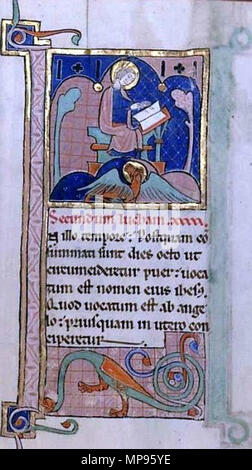 Secundum lucham.
In illo tempore. Postquam co(n)
summati sunt dies octo ut
circumcideretur puer: voca
tum est nomen eius ihesus.
Quod vocatum est ab ange
lo: priusquam in utero con
ciperetur
alamy
www.alamy.com
MP95YE